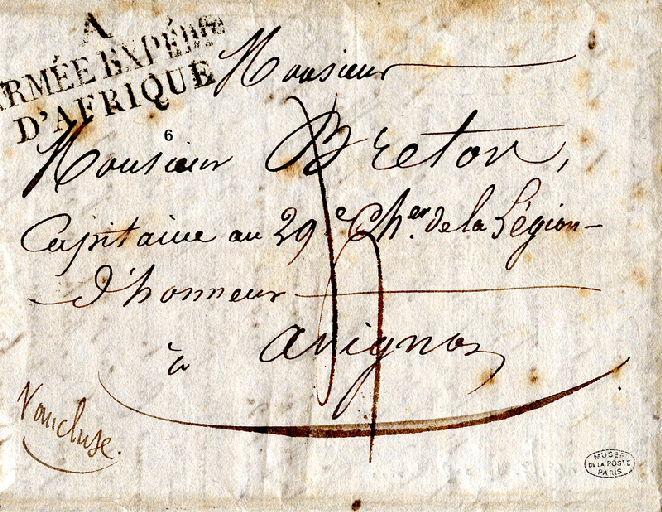 A
ARMÉE EXPÉD.re
D'AFRIQUE
6
Monsieur
Monsieur Breton,
Capitaine au 29e Cher de la Légion
d'honneur
à avignon
Vaucluse.
MUSÉE
DE LA POSTE
PARIS